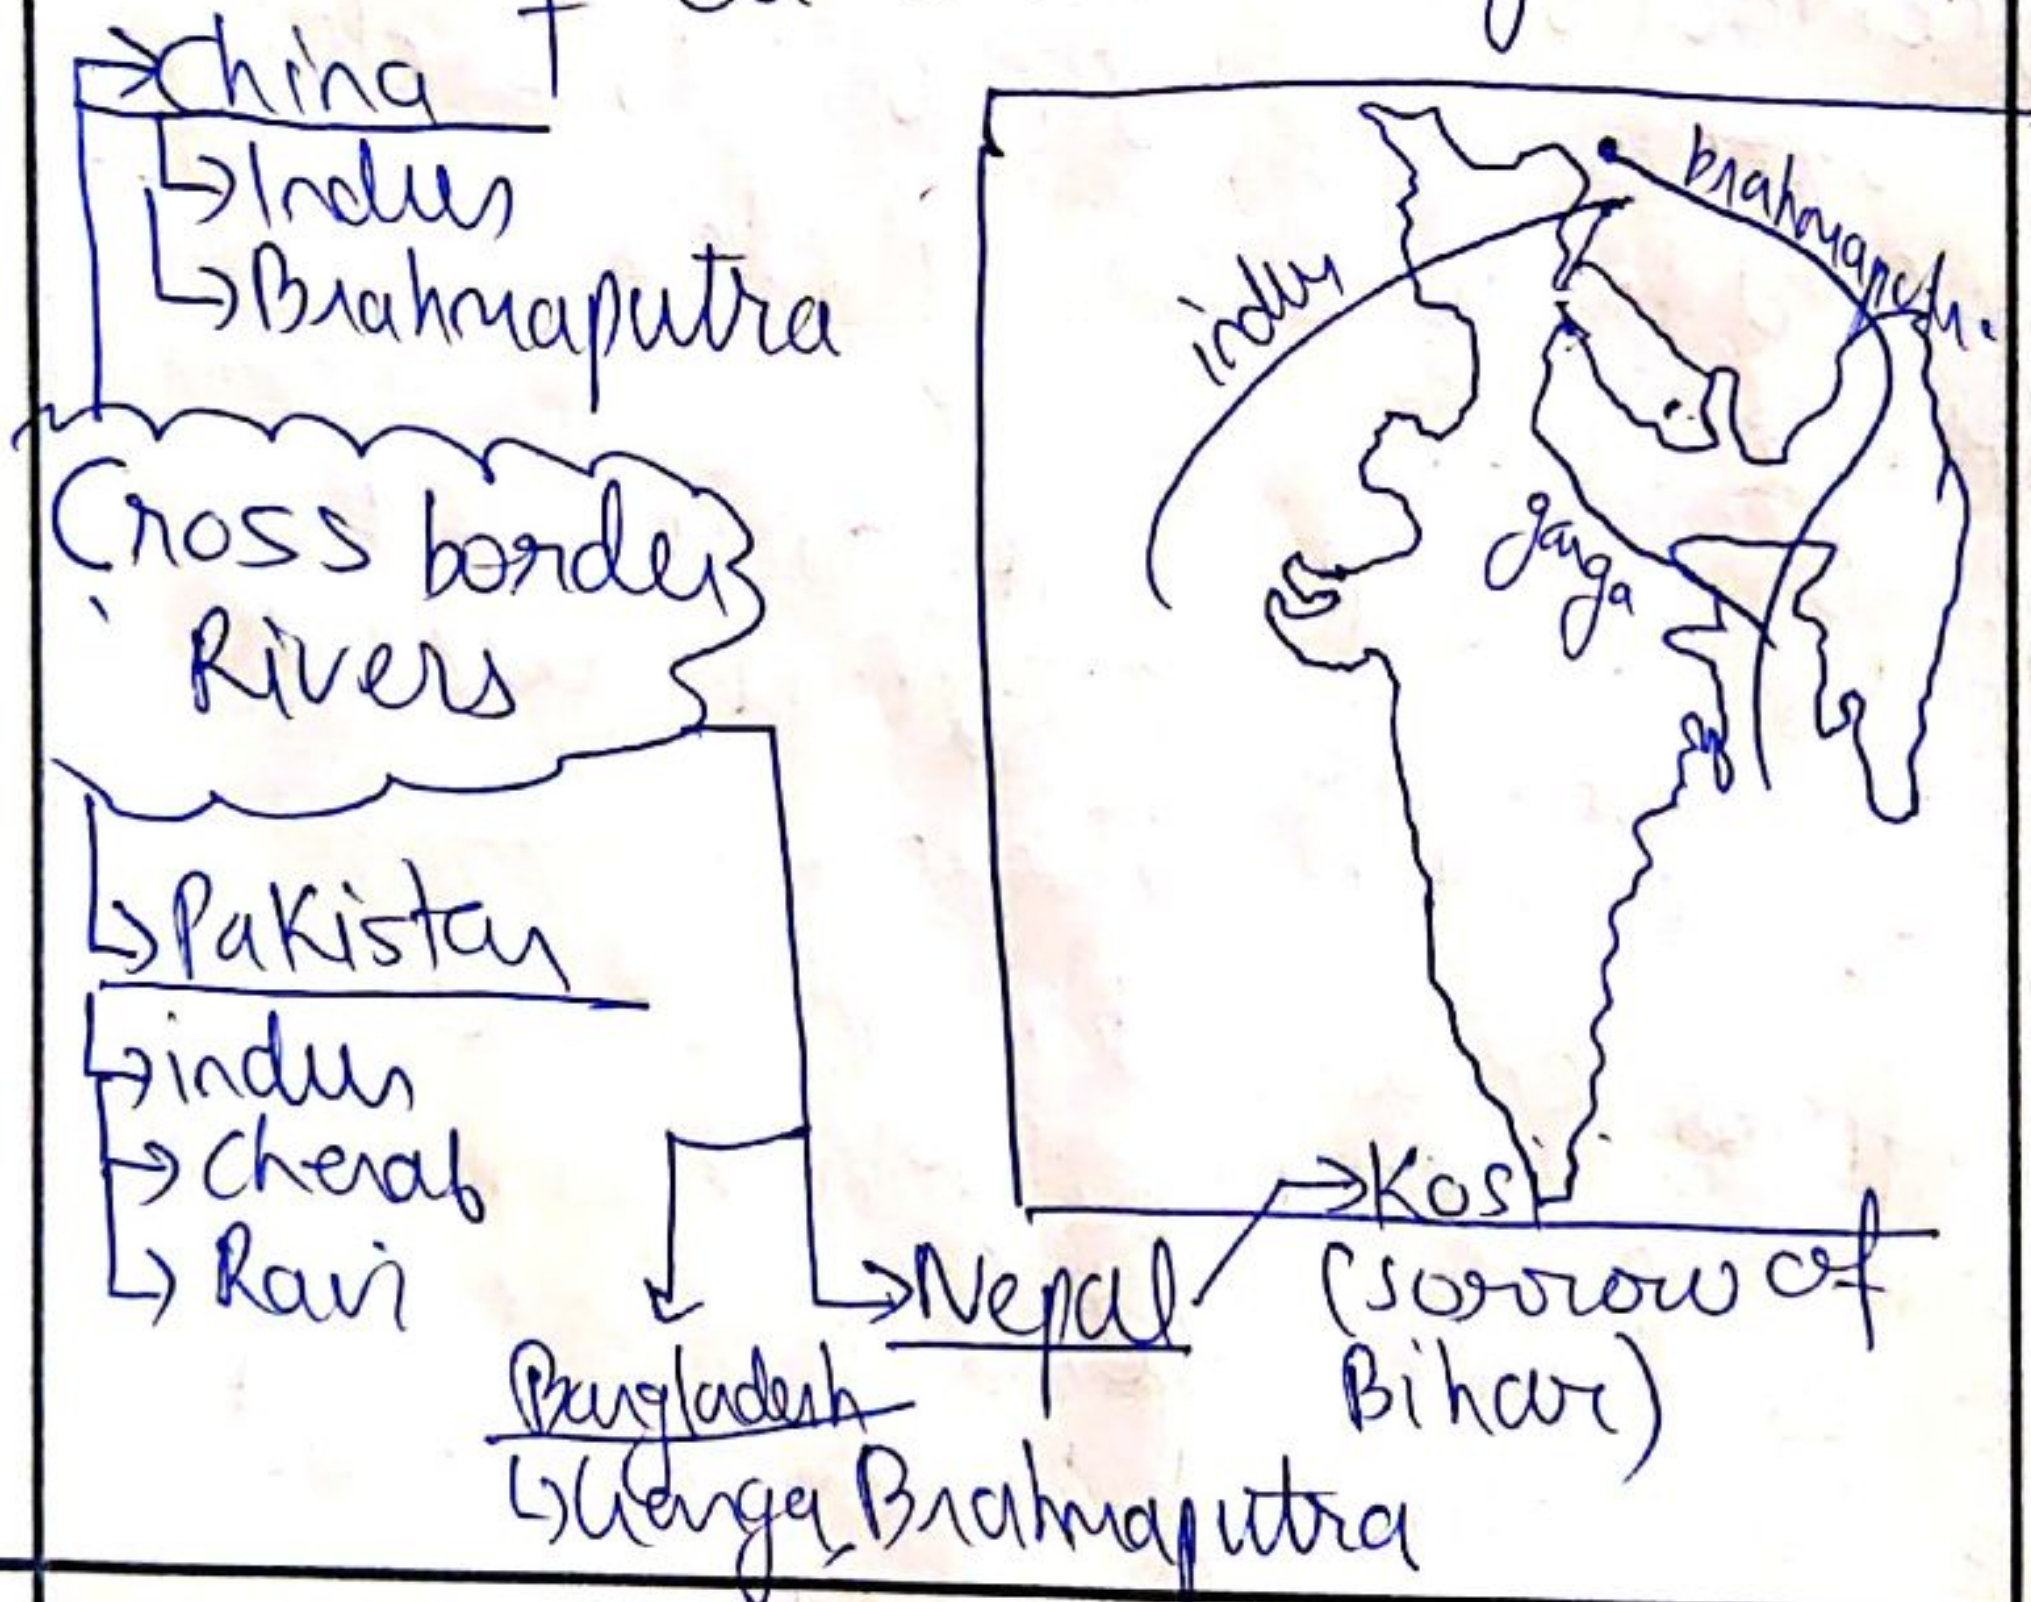 China
Indus
Brahmaputra
Cross border
Rivers
Pakistan
indus
Chenab
Ravi
Bangladesh
Ganga, Brahmaputra
Nepal
Kosi
(sorrow of
Bihar)
indus
ganga